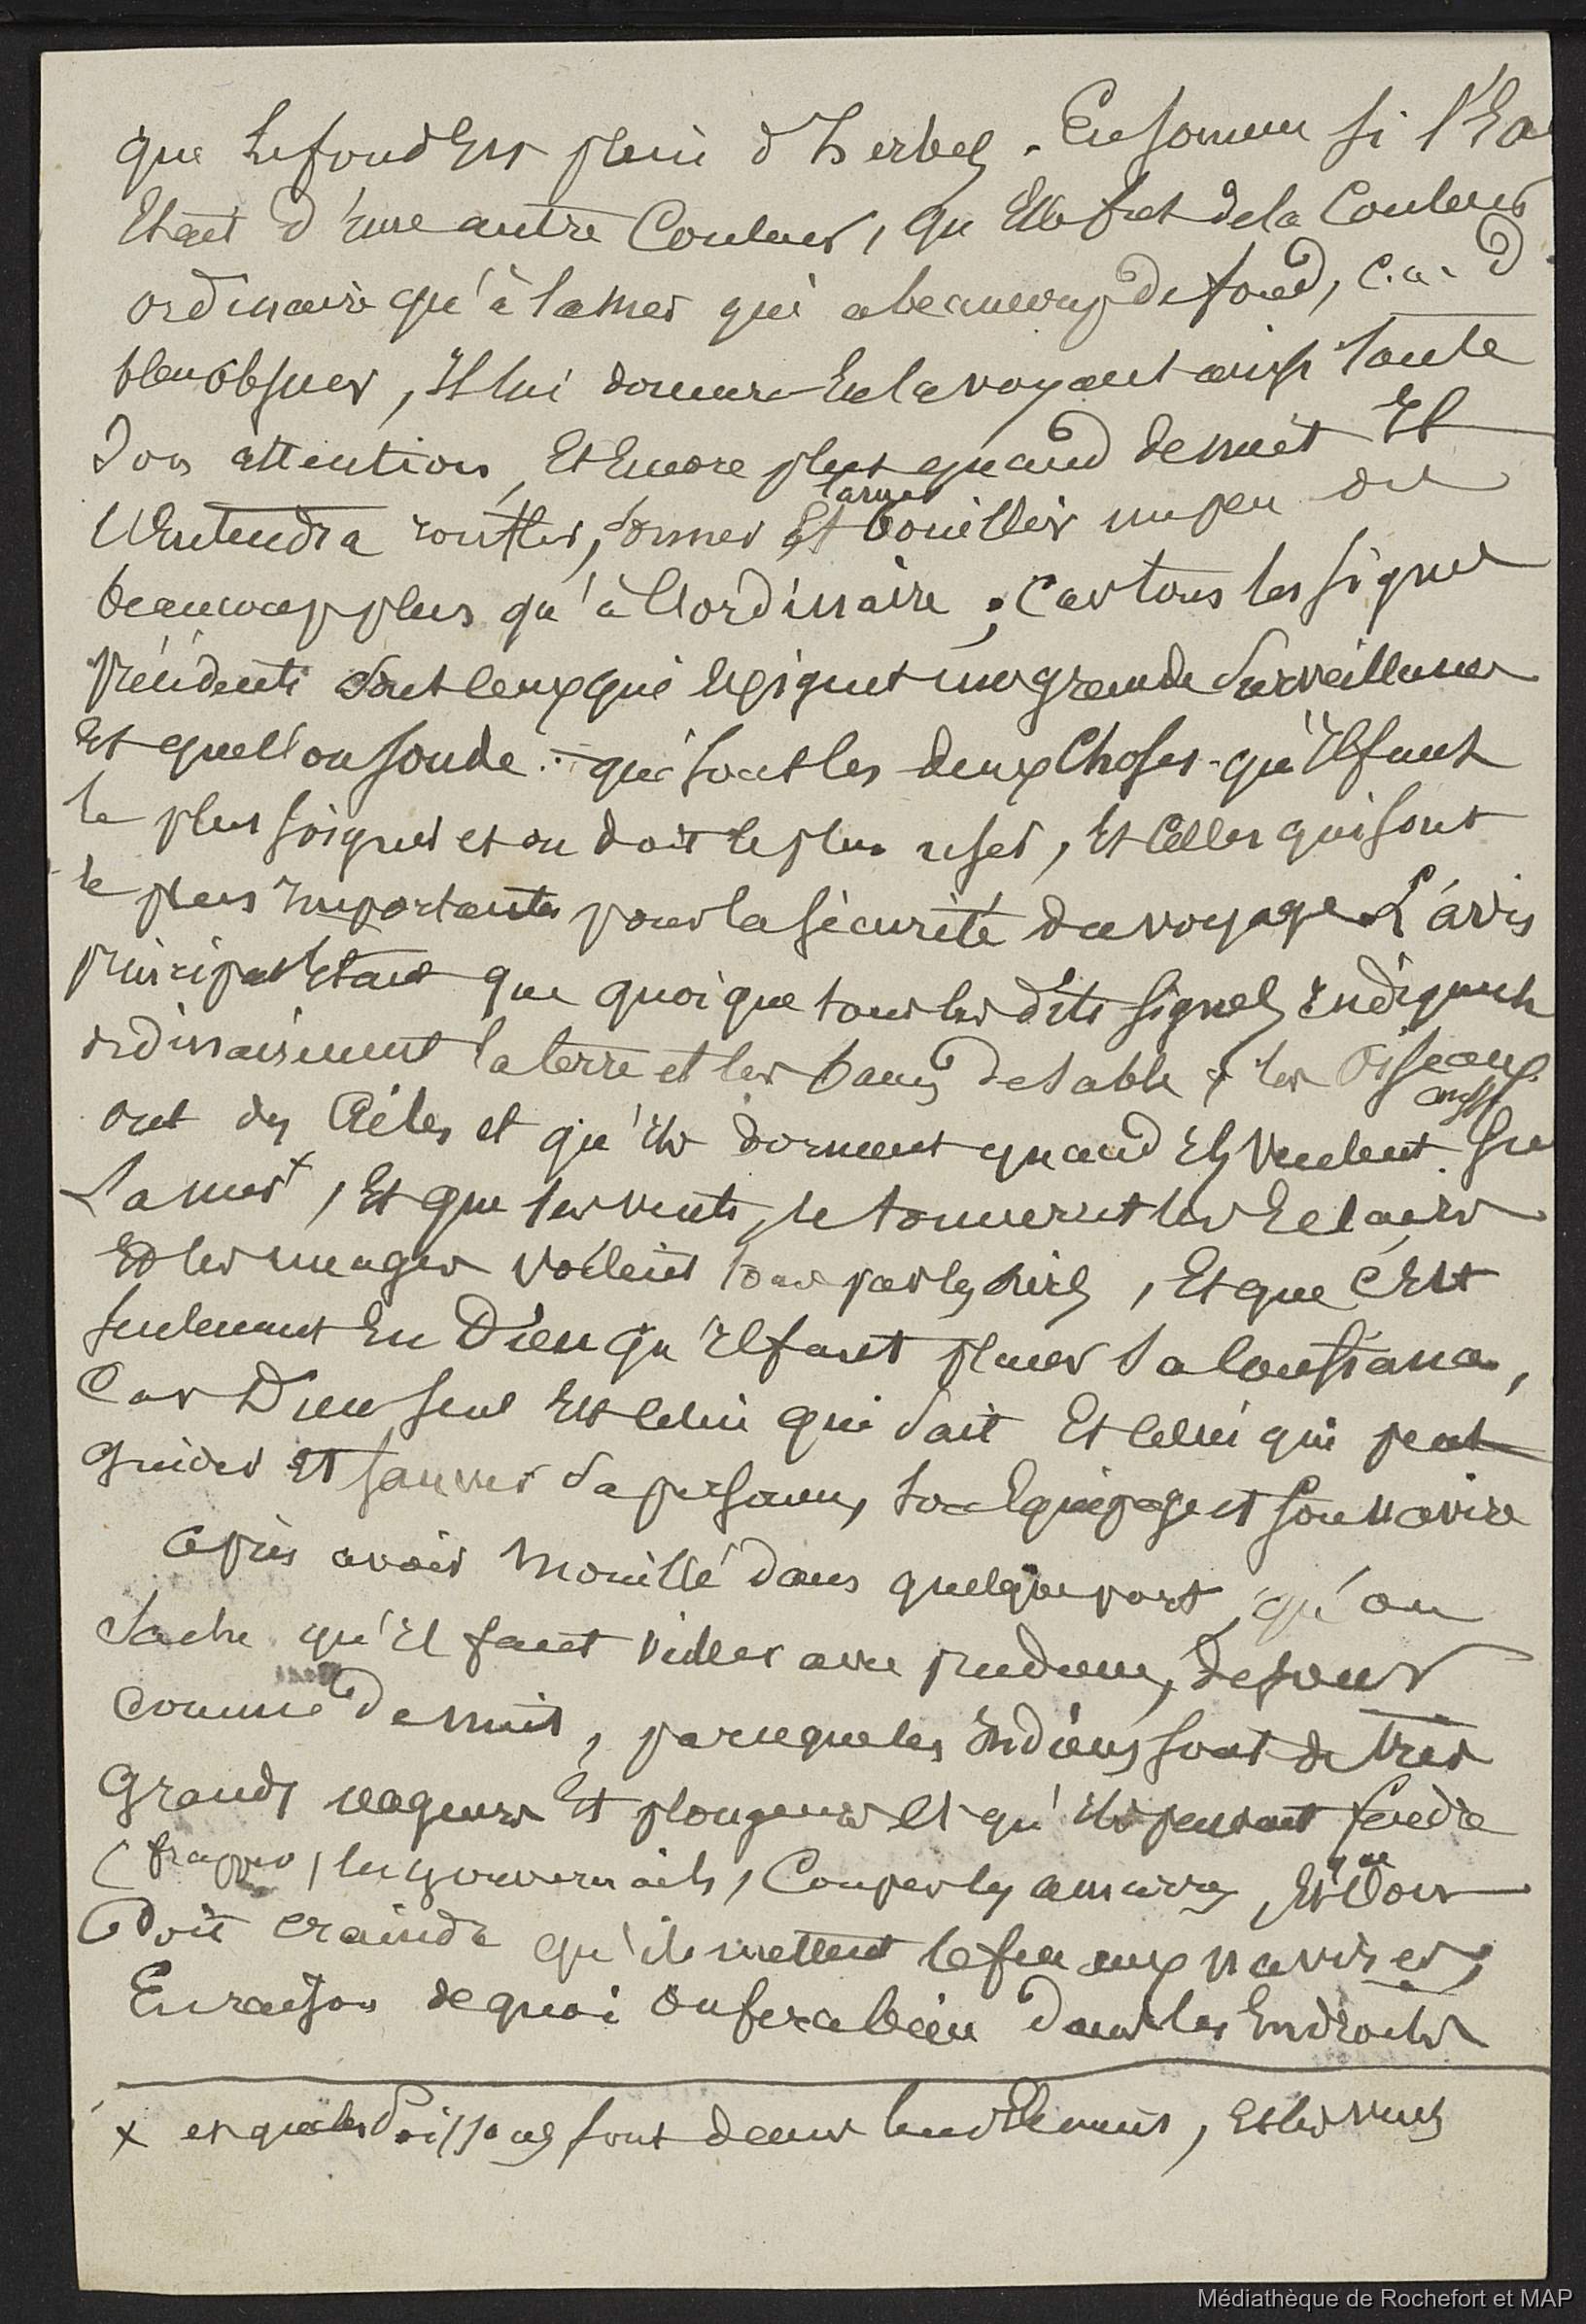 que le fond est plein d'herbes. En somme si l'Ea
Etait d'une autre Couleur, qu'Elle fut de la Couleur
ordinaire qu'à la mer qui a beaucoup de fond, c. a. d
bleu obscur, Il lui donnera En la voyant ainsi toute
son attention, Et Encore plus quand de nuit Il
L'Entendra ronfler, tonner Et bouillir un peu ou
beaucoup plus qu'à l'ordinaire; Car tous les signes
précédents sont ceux qui Exigent une grande surveillance
Et que l'on sonde. - qui sont les deux Choses qu'Il faut
le plus soigner et on doit le plus user, Et Celles qui sont
le plus Importantes pour la sécurité du voyage. L'avis
principal Etant que quoique tous les dits signes Indiquent
ordinairement la terre et les bancs de sable, les Oiseaux
ont des Ailes et qu'ils dorment quand Ils Veulent aussi sur
La mer x, Et que les vents, le tonnerre et les Eclairs
Et les nuages Voilent tous par les airs, Et que C'Est
seulement En Dieu qu'Il faut placer sa Confiance,
Car Dieu seul Est Celui qui sait Et Celui qui peut
Guider Et sauver sa personne, son Equipage et son navire
Après avoir Mouillé dans quelque port, qu'on
sache qu'Il faut Veiller avec prudence, de jour
comme de nuit, parceque les Indiens sont de très
Grands nageurs Et plongeurs Et qu'ils peuvent fendre
(frapper, les gouvernails, Couper les amarres, Et que l'on
doit craindre qu'ils mettent le feu aux navires;
En raison de quoi on fera bien dans les Endroits
x et que les Poissons sont dans leur Elément, et les vents